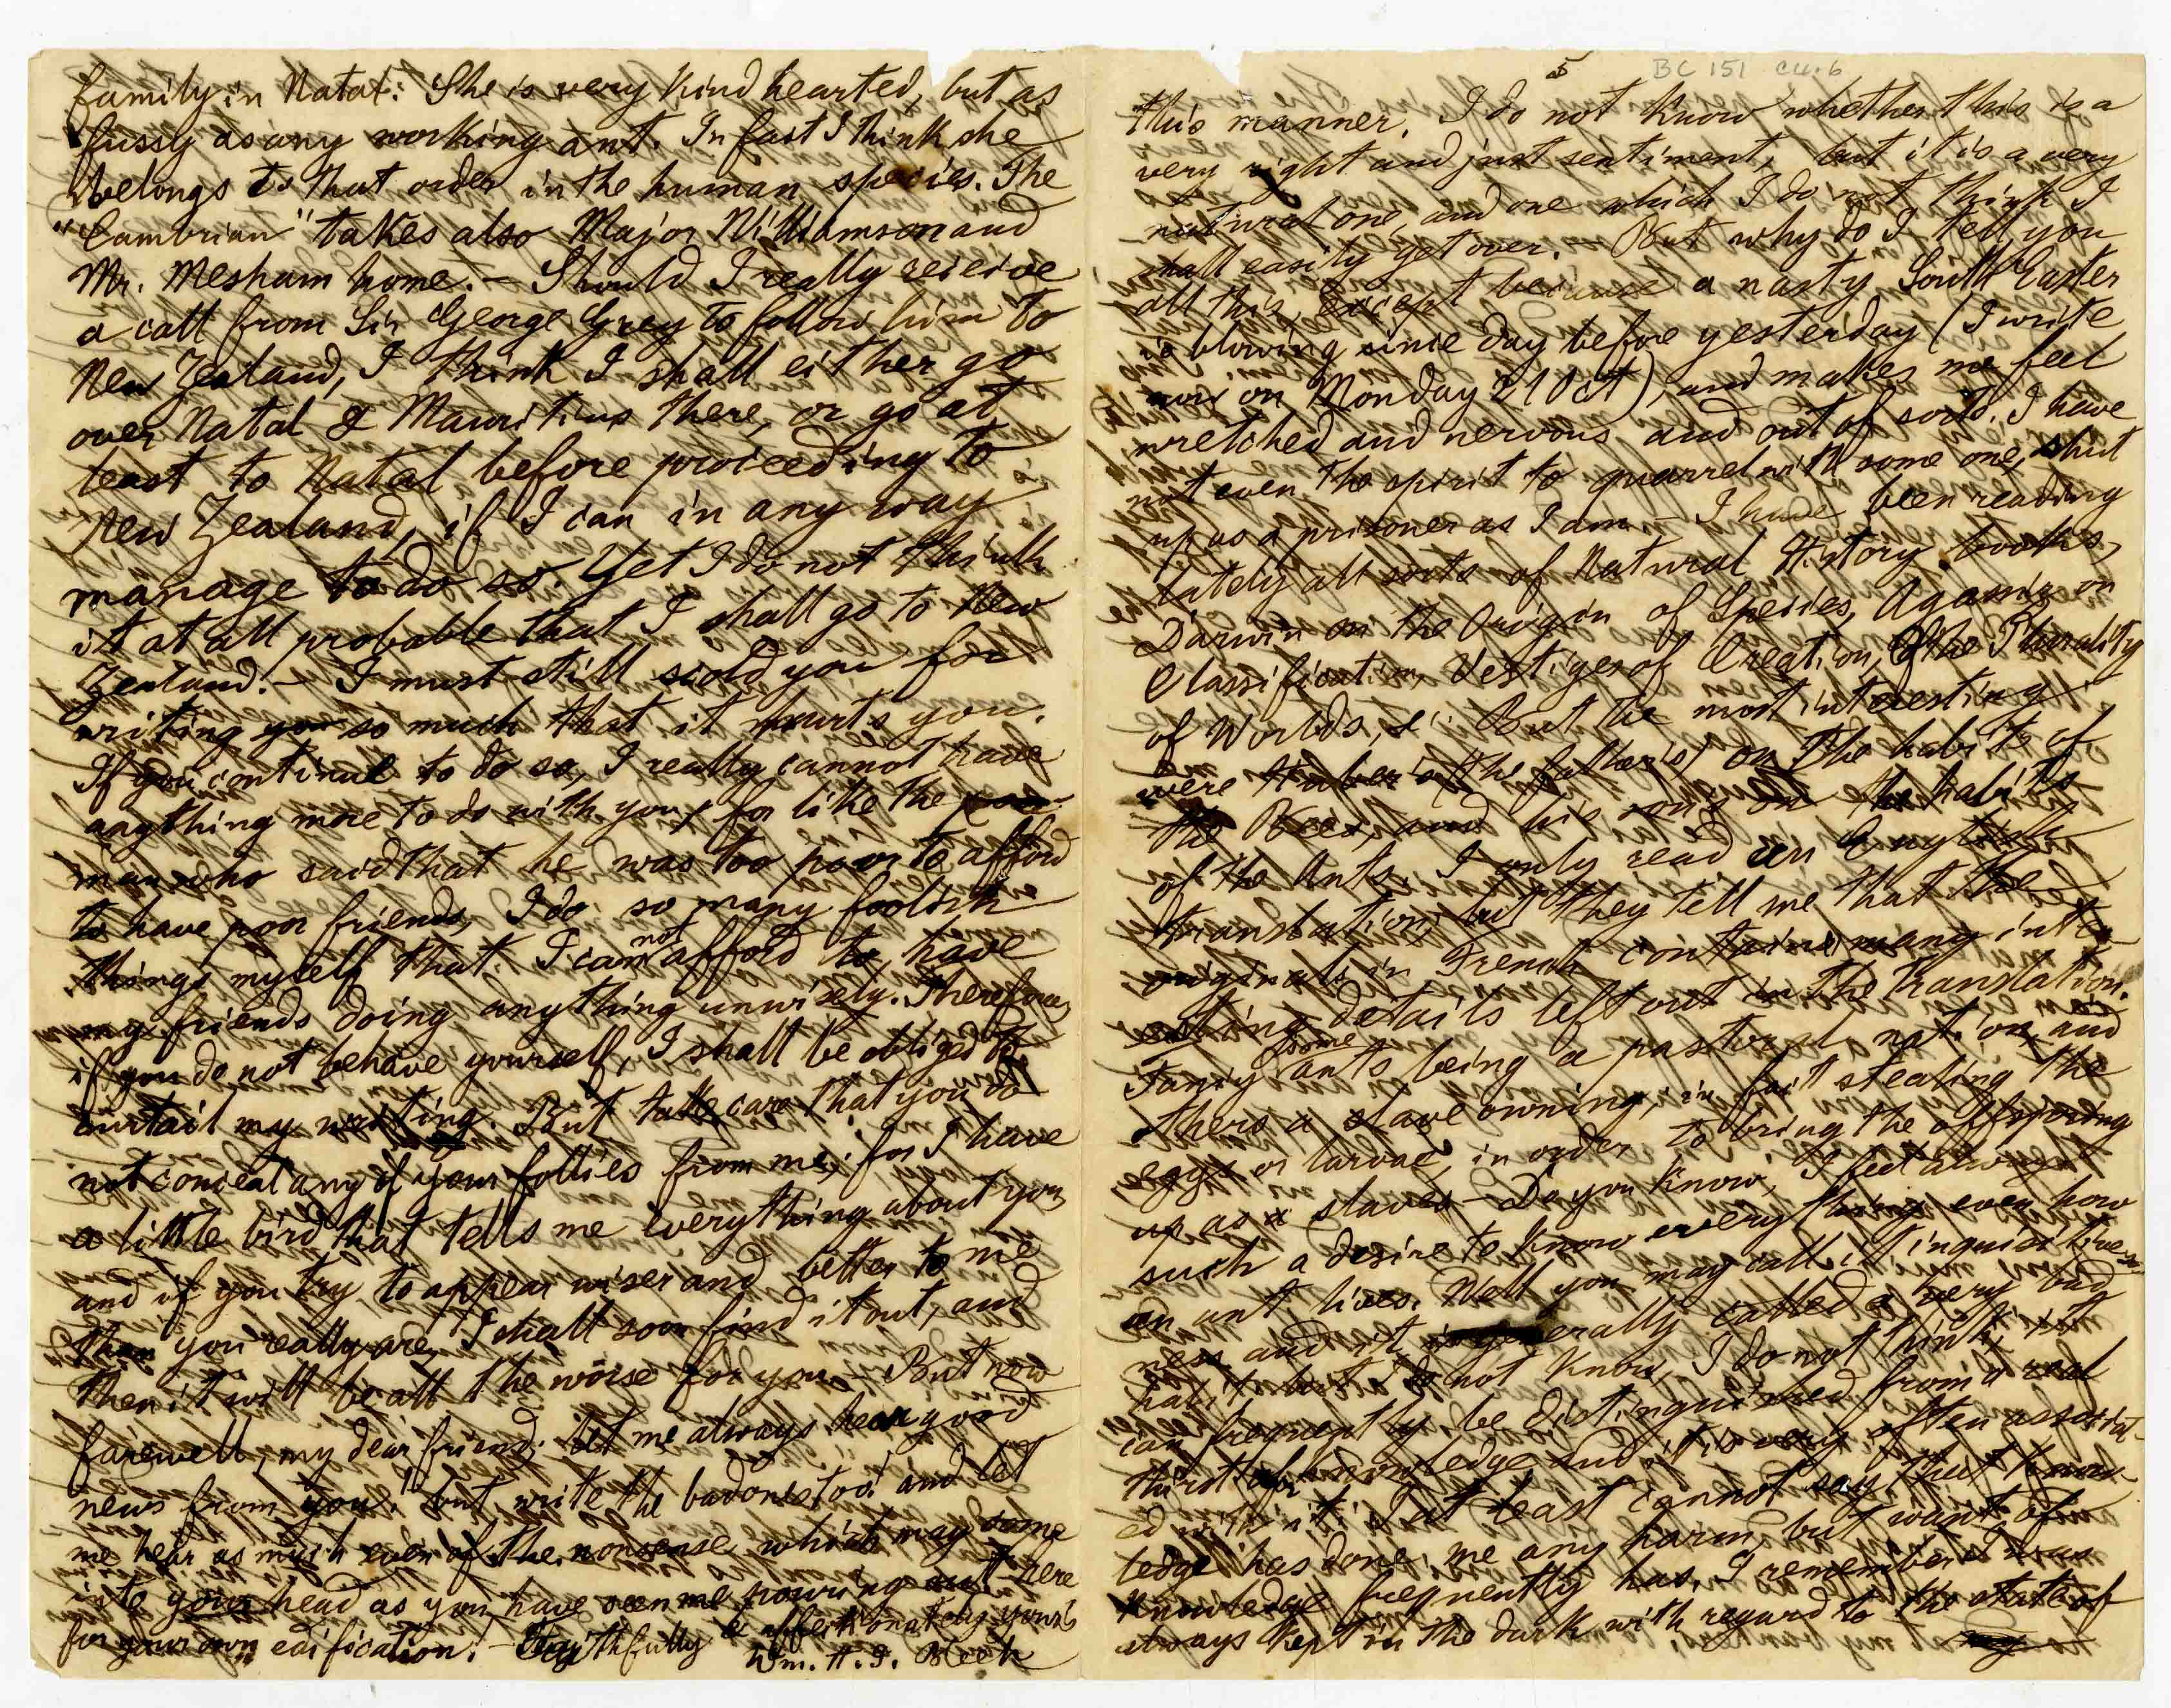 family in Natal: She is very kind hearted, but as
fussy as any working ant. In fact I think she
belongs to that order in the human species. The
"Cambrian" takes also Major Williamson and
Mr. Mesham home. – Should I really receive
a call from Sir George Grey to follow him to
New Zealand, I think I shall either go
over Natal & Mauritius there, or go at
least to Natal before proceeding to
New Zealand, if I can in any way
manage to do so. Yet I do not think
it at all probable that I shall go to New
Zealand. – I must still scold you for
writing so much that it hurts you.
If you continue to do so, I really cannot have
anything more to do with you, for like the
man who said that he was too poor to afford
to have poor friends, I do so many foolish
things myself that I can not afford to have
my friends doing anything unwisely. Therefore,
if you do not behave yourself, I shall be obliged to
curtail my writing. But take care that you do
not conceal any of your follies from me; for I have
a little bird that tells me everything about you,
and if you try to appear wiser and better to me
than you really are, I shall soon find it out, and
then it will be all the worse for you. – But now
farewell, my dear friend; let me always hear good
news from you. but write the bad ones too! and let
me hear as much even of the nonsense which may come
into your head as you have seen me pouring out here
for your own edification! – Faithfully & affectionately yours
Wm. H. I. Bleek
5
BC 151 C4.6
this manner. I do not know whether this is a
very right and just sentiment, but it is a very
natural one, and one which I do not think I
shall easily get over. But why do I tell you
all this, except because a nasty South Easter
is blowing since day before yesterday (I write
now on Monday 21 Oct), and makes me feel
wretched and nervous and out of sorts. I have
not even the spirit to quarrel with some one, shut
up as a prisoner as I am. – I have been reading
lately all sorts of Natural History books,
Darwin on the Origin of Species, Agassiz on
Classification, Vestiges of Creation, Of the Plurality
of Worlds, &c. But the most interesting
were Huber's (the father's) on the habits of
the Bees, and his son's on the habits
of the Ants. I only read an English
translation, but they tell me that the
originals in French contain many inter-
esting details left out in the translation.
Fancy some ants being a pastoral nation, and
others a slave owning, in fact stealing the
eggs or larvae, in order to bring the offspring
up as slaves – Do you know, I feel always
such a desire to know everything, even how
an ant lives. Well you may call it inquisitive-
ness and it is generally called a very bad
habit, but I do not know, I do not think it
can frequently be distinguished from a real
thirst for knowledge and it is very often associat-
ed with it. I at least cannot say, that know-
ledge has done me any harm, but want of
knowledge frequently has. I remember I was
always kept in the dark with regard to the state of